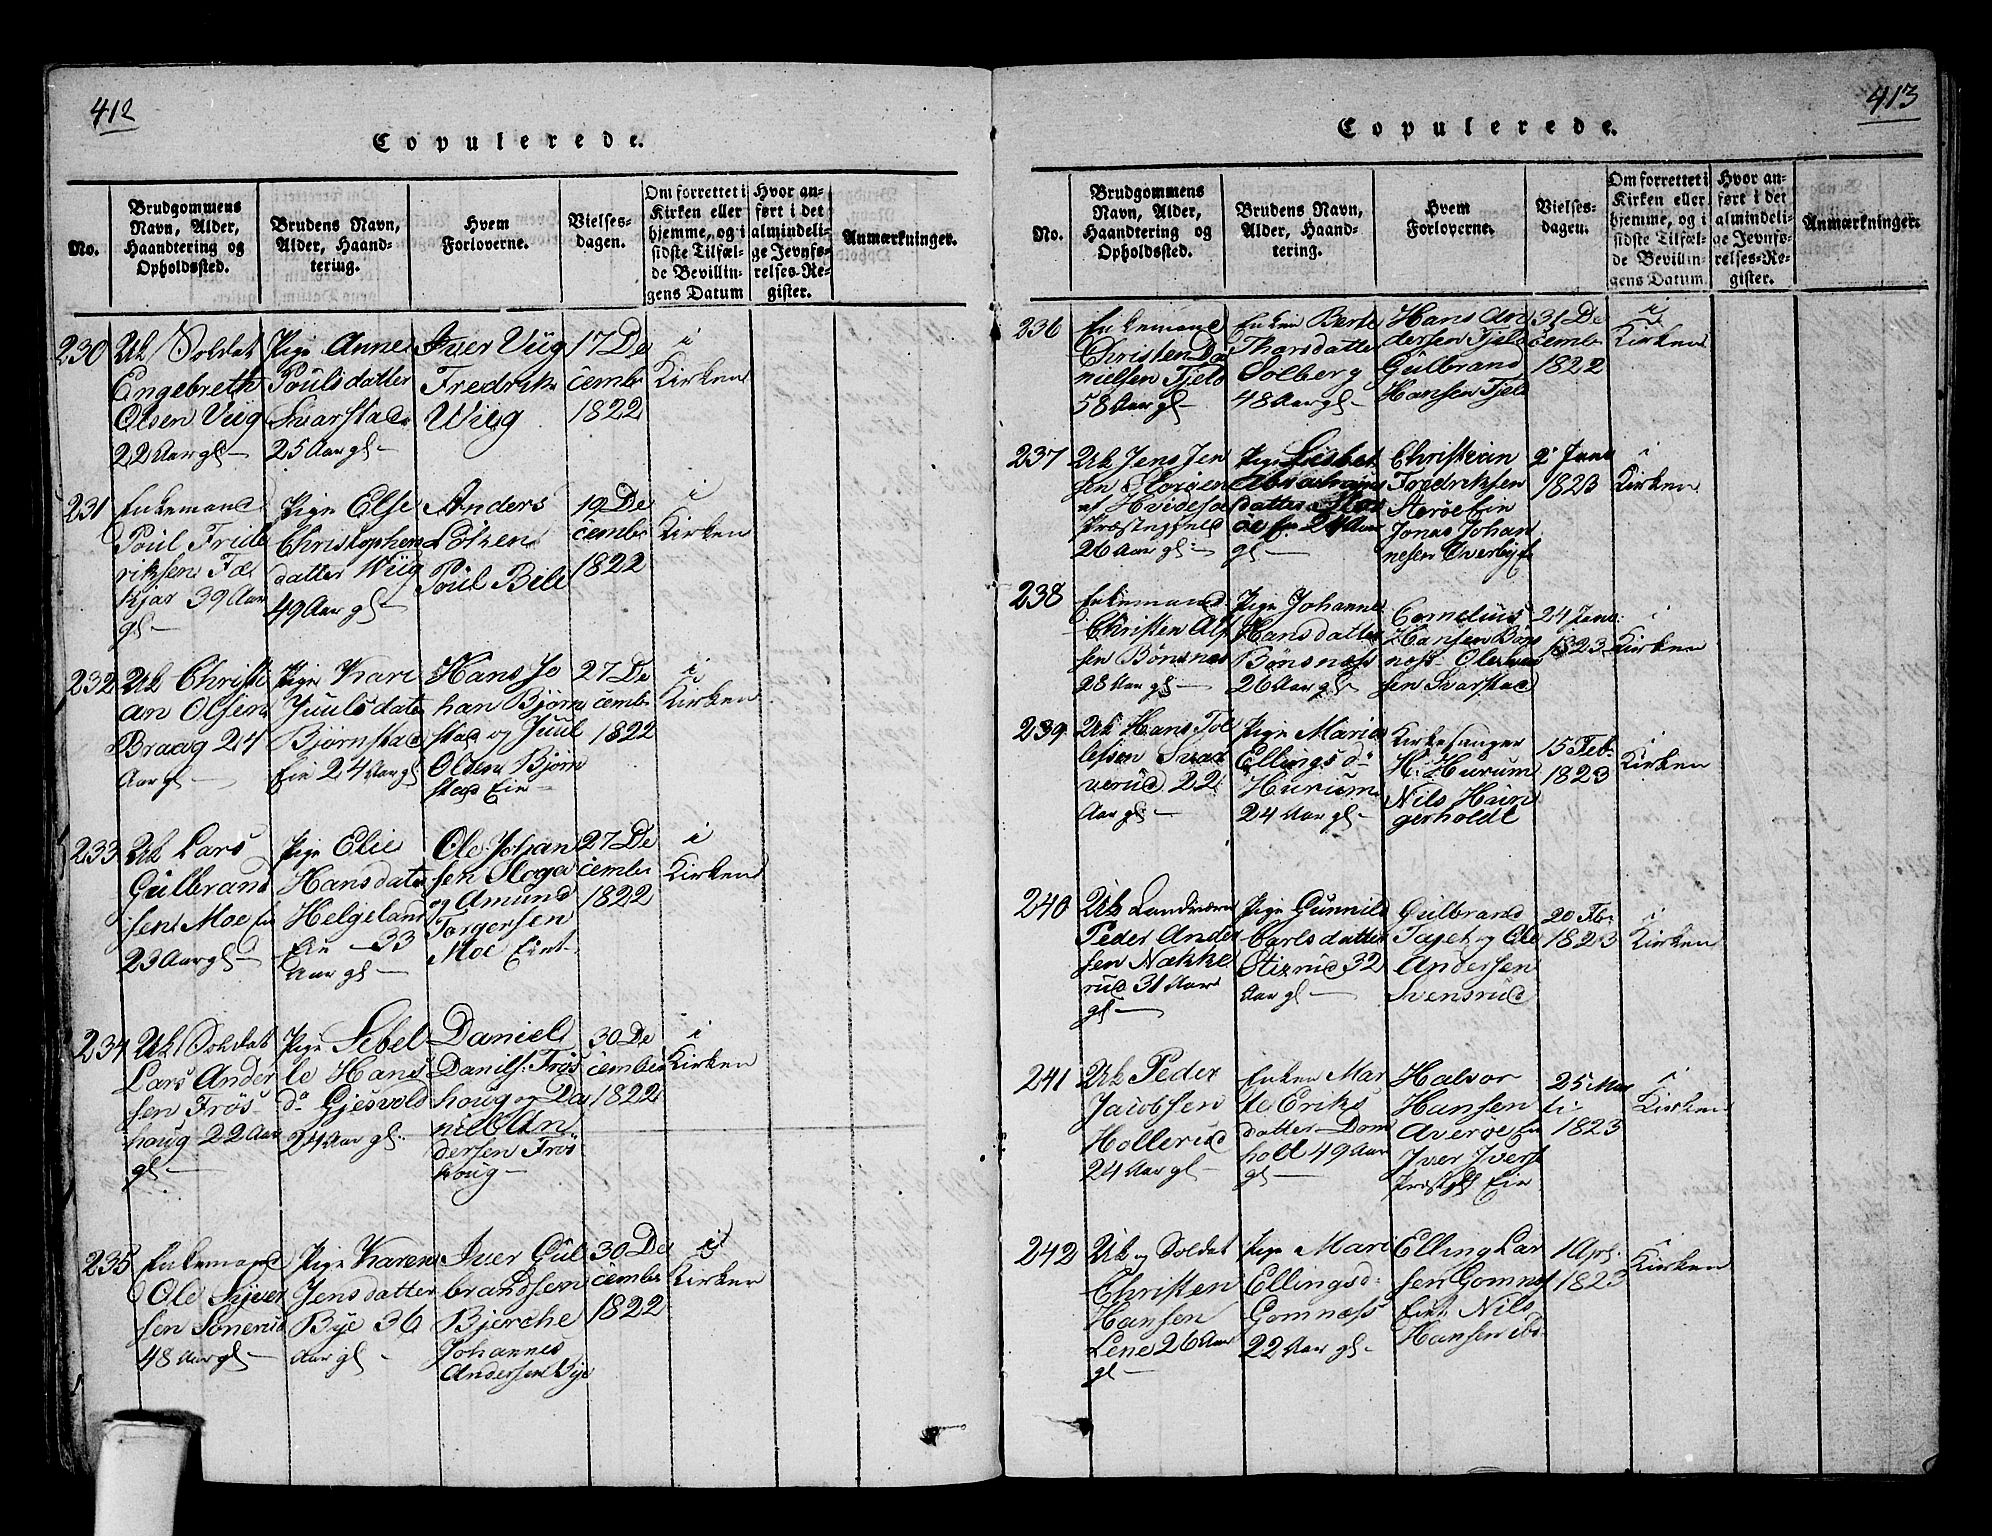 412
Copulerede.
No.
Brudgommens Navn, Alder, Haandtering og Opholdssted.
Brudens Navn, Alder, Haandtering.
Hvem Forloverne.
Vielsesdagen.
Om forrettet i Kirken eller hjemme, og i sidste Tilfælde Bevillingens Datum
Hvor anført i det almindelige Jevnførelses-Register.
Anmærkninger.
230
Uk Soldat
Engebreth
Olsen Viig
22 Aar gl
Pige Anne
Poulsdatter
Svarstad
25 Aar gl
Iver Viig
Fredrik
Wiig
17 De
cembr
1822
i
Kirken
231
Enkemand
Poul Fride
riksen Fæ
kjær 39 Aar
gl
Pige Else
Christophers
datter Wiig
49 Aar gl
Anders
Olsen
Poul Bili
19 De
cembr
1822
i
Kirken
232
Uk Christi
an Olsen
Braag 24
Aar gl
Pige Kari
Juulsdatr
Bjørnstad
Eie 24 Aar gl
Hans Jo
han Bjørn
stad og Juul
Olsen Bjørn
stad Eie
27 De
cembr
1822
i
Kirken
233
Uk Lars
Gulbrand
sen Moe
23 Aar gl
Pige Elie
Hansdatr
Helgeland
Eie 33
Aar gl
Ole Johan
sen
og Amund
Torgersen
Moe
27 De
cembr
1822
i
Kirken
234
Uk Soldat
Lars Ander
sen Frøs
houg 22 Aar
gl
Pige Sebel
le Hans
d. Gjesvold
24 Aar gl.
Daniel
Danils. Frøs
houg og Da
niel An
dersen Frøs
houg
30 De
cember
1822
i
Kirken
235
Enkemand
Ole Syver
sen Sonerud
48 Aar gl
Pige Karen
Jensdatter
Bye 36
Aar gl
Iver Gul
brandsen
Bjerche
Johannes
Andersen Bye
30 De
cembr
1822
i
Kirken
413
Copulerede.
No.
Brudgommens Navn, Alder, Haandtering og Opholdssted.
Brudens Navn, Alder, Haandtering.
Hvem Forloverne.
Vielsesdagen.
Om forrettet i Kirken eller hjemme, og i sidste Tilfælde Bevillingens Datum.
Hvor anført i det almindelige Jevnførelses-Register.
Anmærkninger.
236
Enkemand
Christen Da
nielsen Fjeld
58 Aar gl
Enken Berte
Tharsdatter
Solberg
48 Aar gl
Hans An
dersen Fjeld
Gulbrand
Hansen Fjeld
31 De
cembr
1822
i
Kirken
237
Uk Jens Jen
sen Storøen
af Hvidesøe
Præstegjeld
26 Aar gl
Pige Lisbet
Abrahams
datter Stor
øe 24 Aar
gl
Christian
Fredriksen
Storøe Eie
Jonas Johan
nesen Overby
2 Janr
1823
i
Kirken
238
Enkemand
Christen Alf
sen Bønsnæs
28 Aar gl
Pige Johanne
Hansdatter
Bønsnæss
26 Aar gl
Cornelius
Hansen Bøns
næss
sen Svarstad
24 Janr
1823
i
Kirken
239
Uk Hans Tol
lefsen Svar
verud 22
Aar gl
Pige Maria
Ellings d.
Hurum
24 Aar gl
Kirkesanger
H. Hurum
Nils Hun
gerholdt
15 Febr
1823
i
Kirken
240
Uk Landværn
Peder Ander
sen Nække
rud 31 Aar
gl
Pige Gunnild
Carlsdatter
Stixrud 32
Aar gl
Gulbrand
og Ole
Andersen
Svensrud
20 Fbr
1823
i
Kirken
241
Uk Peder
Jacobsen
Hollerud
24 Aar gl
Enken Mar
te Eriks
datter Dom
hold 49 Aar
gl
Halvor
Hansen
Averøe
Iver Ivers
Præstgd Eie
25 Mar
ti
1823
i
Kirken
242
Uk og Soldat
Christen
Hansen
Lene 26 Aar
gl
Pige Mari
Ellingsd.
Gomnæss
22 Aar gl
Elling Lar
sen Gomnes
Nils
Hansen ibd.
1 Apr.
1823
i
Kirken